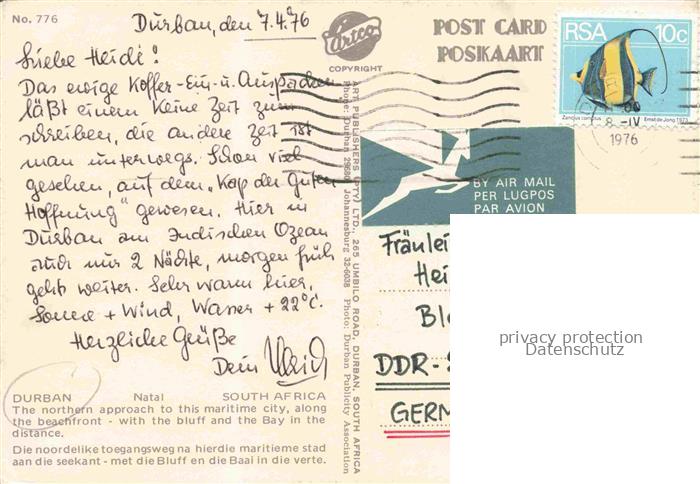 No. 776
Durban, den 7.4.76
Liebe Heidi!
Das ewige Koffer-Ein-u. Auspacken
läßt einem keine Zeit zum
schreiben, die andere Zeit ist
man unterwegs. Schon viel
gesehen, auf dem "Kap der Guten
Hoffnung" gewesen. Hier in
Durban am Indischen Ozean
auch nur 2 Nächte, morgen früh
geht weiter. Sehr warm hier,
Sonne + Wind, Wasser + 22°C.
Herzliche Grüße
Dein
DURBAN Natal SOUTH AFRICA
The northern approach to this maritime city, along
the beachfront - with the bluff and the Bay in the
distance.
Die noordelike toegangsweg na hierdie maritieme stad
aan die seekant - met die Bluff en die Baai in die verte.
Artco
COPYRIGHT
ART PUBLISHERS (PTY) LTD., 265 UMBILO ROAD, DURBAN, SOUTH AFRICA
Phone: Durban 29680, Johannesburg 32-6038 Photo: Durban Publicity Association
POST CARD
POSKAART
RSA 10c
Zanclus cornutus Ernst de Jong 1973
8-IV
1976
BY AIR MAIL
PER LUGPOS
PAR AVION
Fräulei
Hei
Bl
DDR-
GERM
privacy protection
Datenschutz